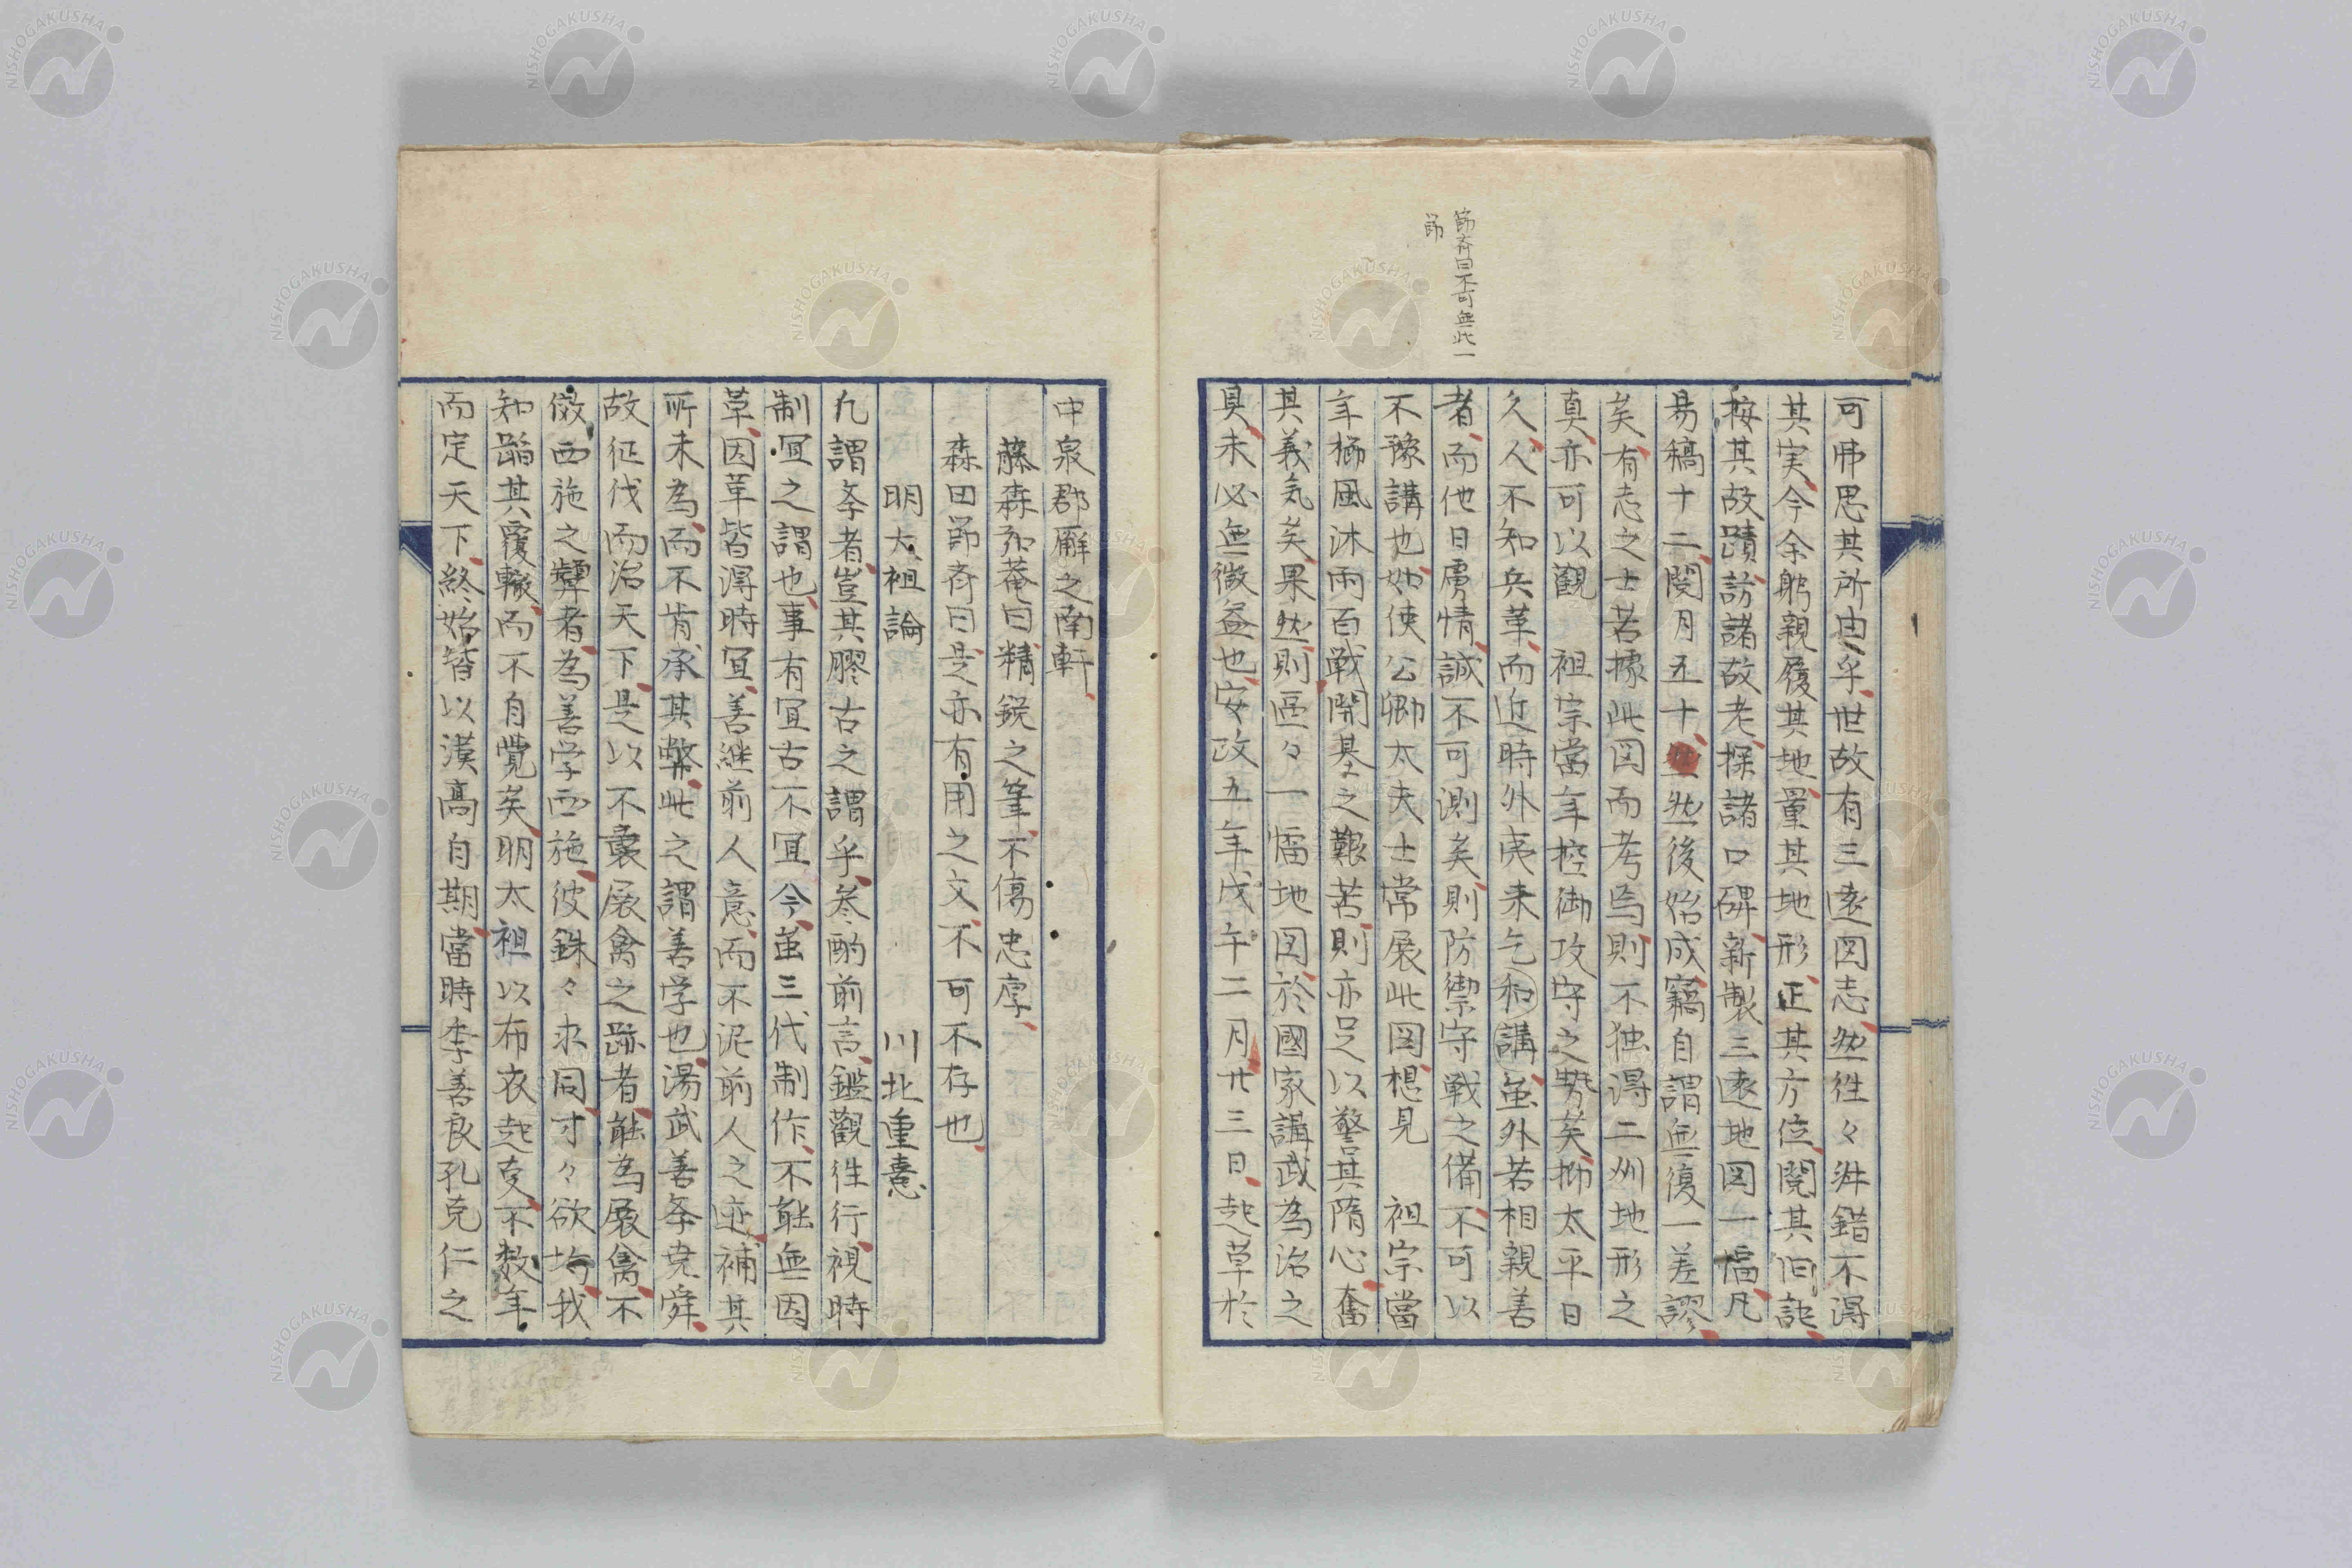 節斎曰不可無此一
節
可弗思其所由乎世故有三遠図志然往々舛錯不得
其実今余躬親履其地量其地形正其方位閲其旧記
按其故蹟訪諸故老探諸口碑新製三遠地図一幅凡
易稿十二閲月五十然後始成竊自謂無復一差謬
矣有志之士若拠此図而考焉則不独得二州地形之
真亦可以観 祖宗当年控御攻守之勢矣抑太平日
久人不知兵革而近時外夷来乞和講虽外若相親善
者而他日虜情誠不可測矣則防禦守戦之備不可以
不豫講也如使公卿太夫士常展此図想見 祖宗當
年櫛風沐雨百戦開基之艱苦則亦足以警其隋心奮
其義気矣果然則區々一幅地図於國家講武為治之
具未必無微益也安政五年戊午二月廿三日起草於
中泉郡廨之南軒
藤森弘菴曰精鋭之筆不傷忠厚
森田節斎曰是亦有用之文不可不存也
明太祖論 川北重憙
凡謂孝者豈其膠古之謂乎参酌前言鑑観往行視時
制冝之謂也事有冝古不冝今虽三代制作不能無因
革因革皆得時冝善継前人意而不泥前人之迹補其
所未為而不肯承其弊此之謂善学也湯武善孝尭舜
故征伐而治天下是以不襲展禽之跡者能為展禽不
傚西施之顰者為善学西施彼銖々求同寸々欲均我
知踏其覆轍而不自覚矣明太祖以布衣起兵不数年
而定天下終始皆以漢高自期當時李善良孔克仁之